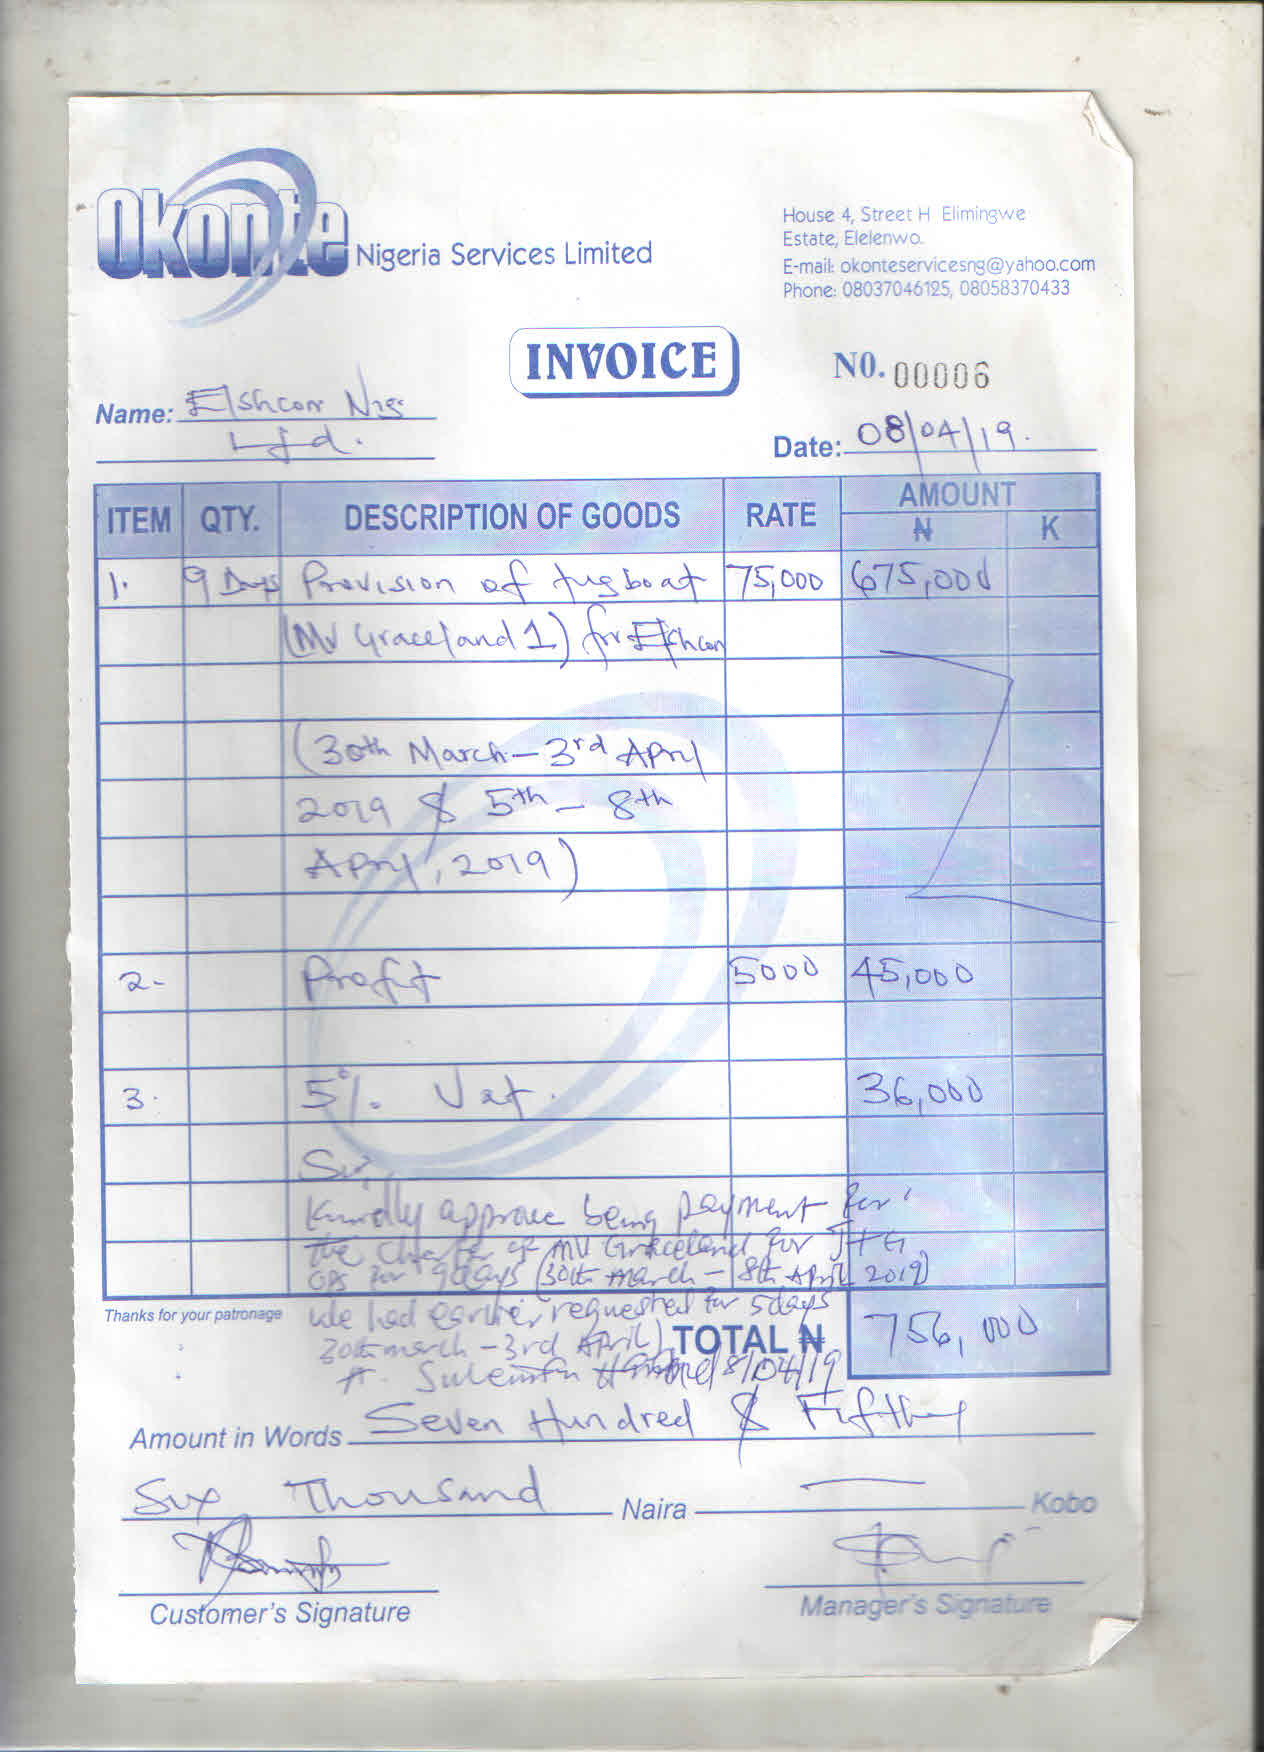 Okonte Nigeria Services Limited
House 4, Street H Elimingwe
Estate, Elelenwo.
E-mail: okonteservicesng@yahoo.com
Phone: 08037046125, 08058370433
INVOICE
NO. 00006
Name: Elshcon Nig
Ltd.
Date: 08/04/19.
ITEM QTY. DESCRIPTION OF GOODS RATE AMOUNT
₦ K
1. 9 Days Provision of tugboat 75,000 675,000
(MV Graceland 1) for Elshcon
(30th March - 3rd April
2019 & 5th - 8th
April, 2019)
2- Profit 5000 45,000
3. 5% Vat. 36,000
Sir,
Kindly approve being payment for
the charter of MV Graceland for
OPS for 9days (30th march - 8th April 2019)
We had earlier requested for 5days
30th march - 3rd April)
Thanks for your patronage
TOTAL ₦ 756,000
A. 8/04/19
Amount in Words Seven Hundred & Fifthy
Six Thousand Naira — Kobo
Customer's Signature
Manager's Signature